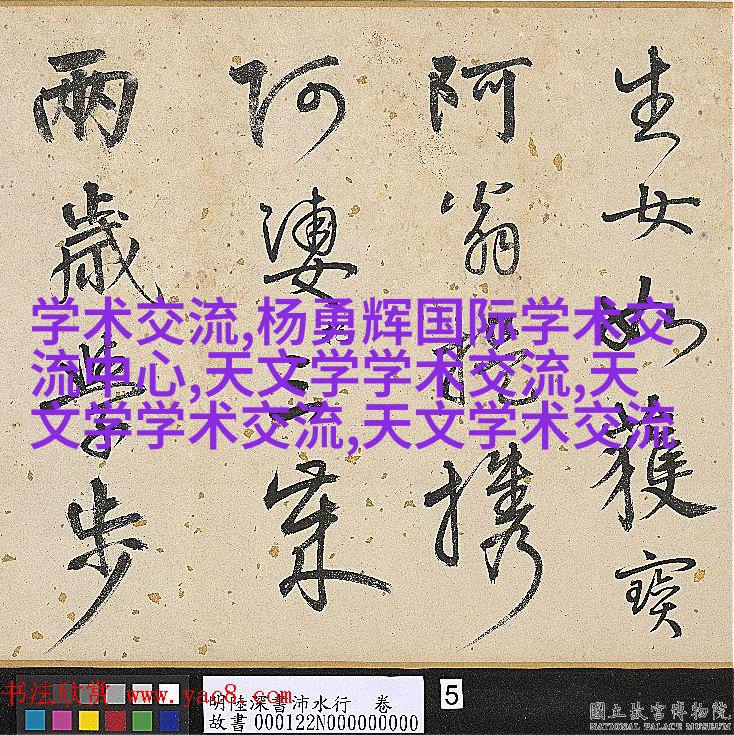 生女如獲寶
阿翁携
阿婆
兩歲學步
学术交流,杨勇辉国际学术交
流中心,天文学学术交流,天
文学学术交流,天文学术交流
书法欣赏 www.yac8.com
明陸深書沛水行 卷
故書 000122N000000000
5
國立故宮博物院
NATIONAL PALACE MUSEUM